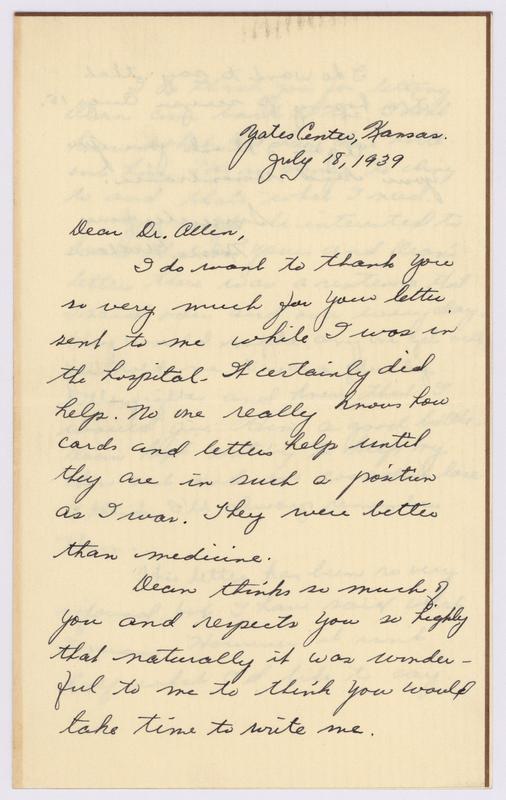 Yates Center, Kansas.
July 18, 1939
Dear Dr. Allen,
I do want to thank you
so very much for your letter
sent to me while I was in
the hospital. It certainly did
help. No one really knows how
cards and letters help until
they are in such a position
as I was. They were better
than medicine.
Dean thinks so much of
you and respects you so highly
that naturally it was wonder-
ful to me to think you would
take time to write me.